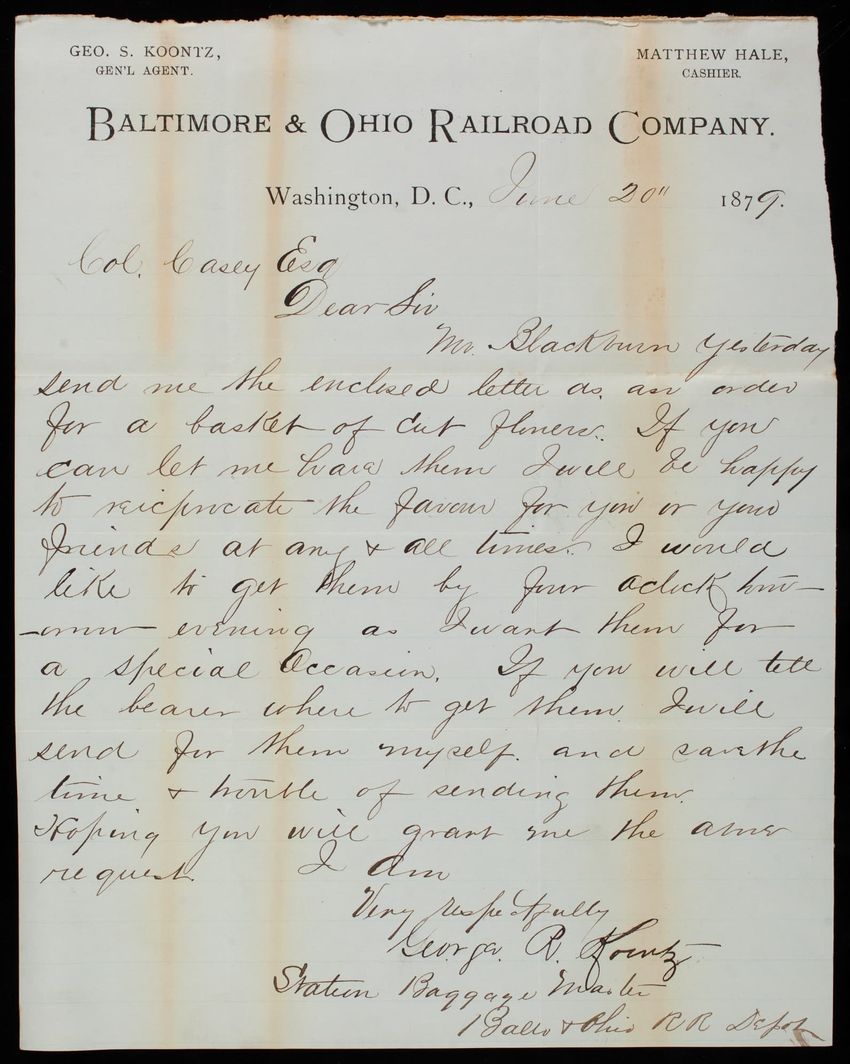 GEO. S. KOONTZ,
GEN'L AGENT.
MATTHEW HALE,
CASHIER.
BALTIMORE & OHIO RAILROAD COMPANY.
Washington, D. C., June 20" 1879.
Col. Casey Esq
Dear Sir
Mr. Blackburn yesterday
send me the enclosed letter as an order
for a basket of cut flowers. If you
can let me have them I will be happy
to reicprocate the favour for you or your
friends at any & all times. I would
like to get them by four oclock tom-
-orrow evening as I want them for
a special Occasion. If you will tell
the bearer where to get them I will
send for them myself and save the
time & trouble of sending them.
Hoping you will grant me the above
request. I am
Very respectfully
George. R. Koontz
Station Baggage Master
Balto & Ohio R R Depot